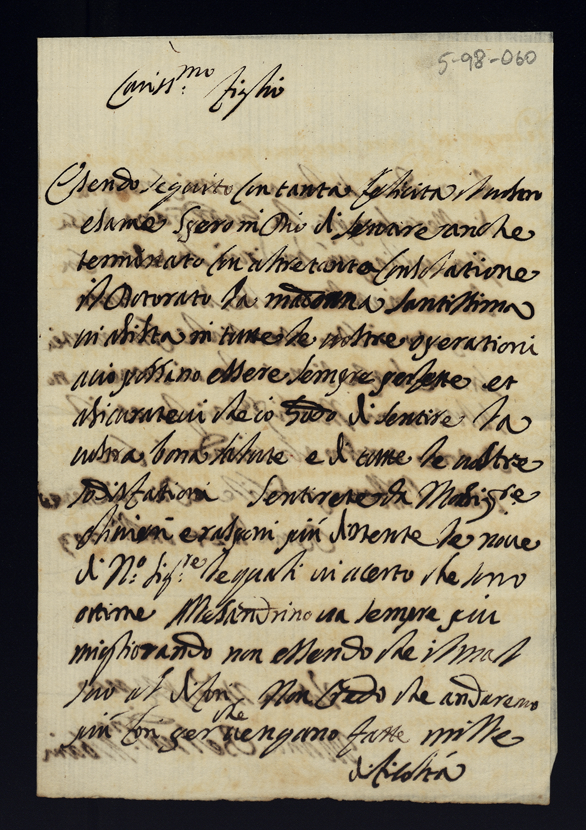 5-98-060
Cariss.mo figlio
Essendo seguito con tanta felicita il vostro
esame spero in Dio di sentire anche
terminato con altretanta consolatione
il Dotorato la madonna santissima
vi asista in tutte le vostre operationi
acio possino essere sempre perfette et
asicuratevi che io godo di sentire la
vostra bona salute e di tutte le vostre
sodisfationi Sentirete da Monsig.re
e rasponi piu distente le nove
di N.o Sig.re le quali vi acerto che sono
ottime Alesandrino va sempre piu
migliorando non essendo che il mal
suo al Non credo che andaremo
piu perche vengano fatte mille
dificolta